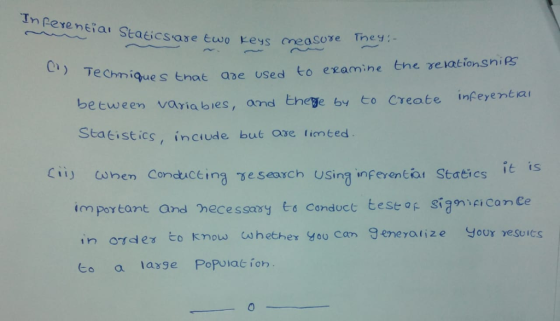 Inferential Statics are two keys measure They:-
(i) Techniques that are used to examine the relationships
between variables, and there by to create inferential
Statistics, include but are limted.
(ii) When conducting research using inferential Statics it is
important and necessary to conduct test of significance
in order to know whether you can generalize your results
to a large population.
0